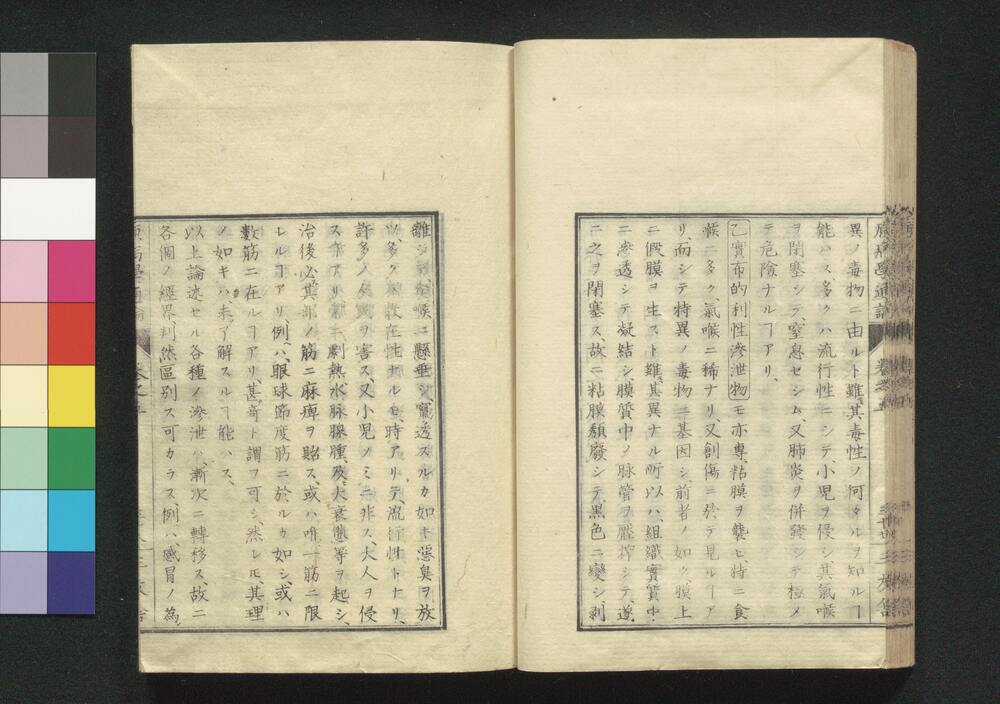 異ノ毒物ニ由ルト雖其毒性ノ何タルヲ知ルヿ
能ハス多クハ流行性ニシテ小児ヲ侵シ其氣喉
ヲ閉塞シテ、窒息セシム、又肺炎ヲ併發シテ極メ
テ危険ナルヿアリ、
乙實布的利性滲泄物モ亦專粘膜ヲ襲ヒ、特ニ食
喉ニ多ク、氣喉ニ稀ナリ、又創傷ニ於テ見ルヿア
リ、而シテ特異ノ毒物ニ基因シ、前者ノ如ク膜上
ニ假膜ヲ生スト雖、其異ナル所以ハ、組織實質中
ニ滲透シテ凝結シ膜質中ノ脉管ヲ壓搾シテ、遂
ニ之ヲ閉塞ス、故ニ粘膜頽廢シテ、黒色ニ變シ剥
離シ 喉ニ懸垂シ竄透スルカ如ト惡臭ヲ放
以、多ク 性ナルモ、時アリテ、流行性トナリ、
許多ノ ヲ害ス、又小児ノミニ非ス、大人ヲ侵
ス亦アリ 劇熱水脉腺腫、及、大衰憊等ヲ起シ、
治後必、其部ノ筋ニ麻痺ヲ貽ス、或ハ唯一筋ニ限
レルヿアリ、例ハ、眼球節度筋ニ於ルカ如シ、或ハ
數筋ニ在ルヿアリ、甚奇ト謂フ可シ、然レモ、其理
ノ如キハ未、了解スルヿ能ハス、
以上論述セル各種ノ滲泄ハ、漸次ニ轉移ス故ニ
各個ノ經界判然區別ス可カラス例ハ、感冒ノ為